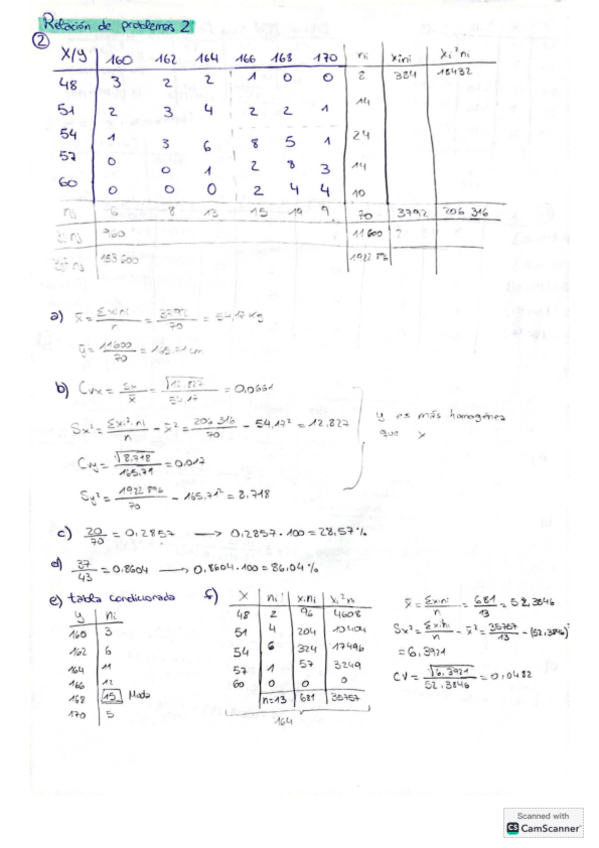 Relación de problemas 2
②
X/Y 160 162 164 166 168 170 ni xini xi²ni
48 3 2 2 1 0 0 8 384 18432
51 2 3 4 2 2 1 14
54 1 3 6 8 5 1 24
57 0 0 1 2 8 3 14
60 0 0 0 2 4 4 10
nj 6 8 13 15 19 9 70 3792 206 316
960 11600 2
153 600 1922 896
a) x̄ = Σxini/n = 3792/70 = 54,17 Kg
ȳ = 11600/70 = 165,71 cm
b) CVx = Sx/x̄ = √12,827/54,17 = 0,0661
Sx² = Σxi²·ni/n - x̄² = 206 316/70 - 54,17² = 12,827
y es más homogénea
que x
CVy = √8,718/165,71 = 0,017
Sy² = 1922 896/70 - 165,71² = 8,718
c) 20/70 = 0,2857 → 0,2857·100 = 28,57%
d) 37/43 = 0,8604 → 0,8604·100 = 86,04%
e) tabla condicionada
y ni
160 3
162 6
164 11
166 12
168 15 Moda
170 5
f) X ni xini xi²ni
48 2 96 4608
51 4 204 10404
54 6 324 17496
57 1 57 3249
60 0 0 0
n=13 681 35757
164
x̄ = Σxini/n = 681/13 = 52,3846
Sx² = Σxi²ni/n - x̄² = 35757/13 - (52,3846)²
= 6,3921
CV = √6,3921/52,3846 = 0,0482
Scanned with
CS CamScanner